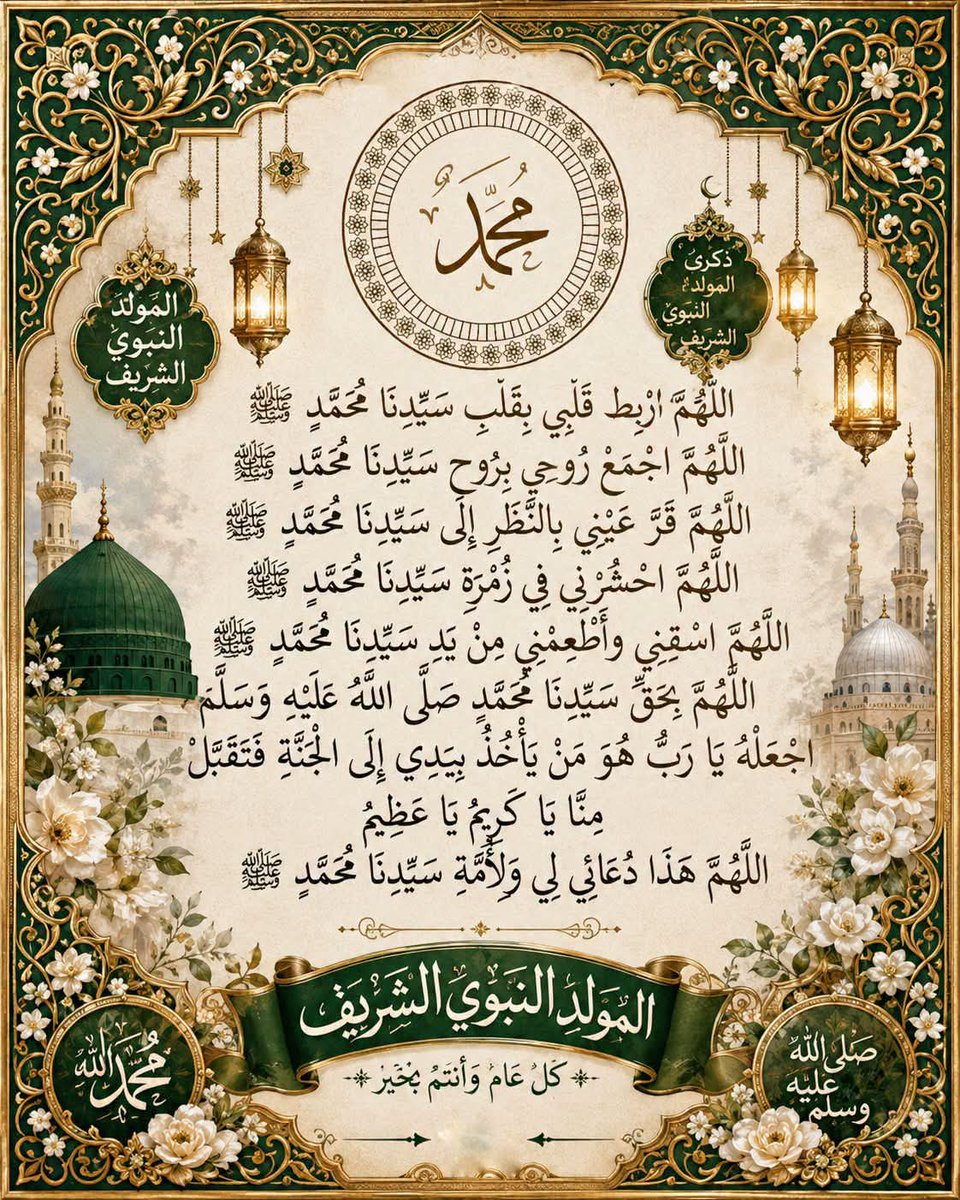 محمد
ذكرى
المولد
النبوي
الشريف
المولد
النبوي
الشريف
اللَّهُمَّ ارْبِط قَلْبِي بِقَلْبِ سَيِّدِنَا مُحَمَّدٍ ﷺ
اللَّهُمَّ اجْمَعْ رُوحِي بِرُوحِ سَيِّدِنَا مُحَمَّدٍ ﷺ
اللَّهُمَّ قَرَّ عَيْنِي بِالنَّظَرِ إِلَى سَيِّدِنَا مُحَمَّدٍ ﷺ
اللَّهُمَّ احْشُرْنِي فِي زُمْرَةِ سَيِّدِنَا مُحَمَّدٍ ﷺ
اللَّهُمَّ اسْقِنِي وأَطْعِمْنِي مِنْ يَدِ سَيِّدِنَا مُحَمَّدٍ ﷺ
اللَّهُمَّ بِحَقِّ سَيِّدِنَا مُحَمَّدٍ صَلَّى اللَّهُ عَلَيْهِ وَسَلَّمَ
اجْعَلْهُ يَا رَبُّ هُوَ مَنْ يَأْخُذُ بِيَدِي إِلَى الْجَنَّةِ فَتَقَبَّلْ
مِنَّا يَا كَرِيمُ يَا عَظِيمُ
اللَّهُمَّ هَذَا دُعَائِي لِي وَلِأُمَّةِ سَيِّدِنَا مُحَمَّدٍ ﷺ
المَولِدِ النبَوِي الشَرِيفِ
كل عَام وَأنتمُ بِخَيْر
صَلى الله
عليه
وسلم
محمد الله